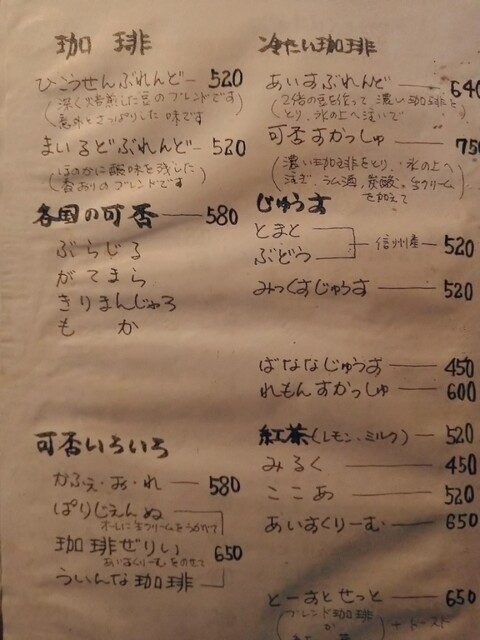 珈琲
ひこうせんぶれんど 520
(深く焙煎した豆のブレンドです
意外とさっぱりした味です)
まいるどぶれんど 520
(ほのかに酸味を残した
香おりのブレンドです)
各国の可否 580
ぶらじる
がてまら
きりまんじゃろ
もか
可否いろいろ
かふぇ・お・れ 580
ぱりじぇんぬ
オーレに生クリームをうかべて
珈琲ぜりい 650
あいすくりーむをのせて
ういんな珈琲
冷たい珈琲
あいすぶれんど 640
(2倍の豆を使って濃い珈琲を
とり、氷の上へ注いで)
可否すかっしゅ 750
(濃い珈琲をとり、氷の上へ
注ぎ、ラム酒、炭酸、生クリーム
を加えて)
じゅうす
とまと
ぶどう 信州産 520
みっくすじゅうす 520
ばななじゅうす 450
れもんすかっしゅ 600
紅茶(レモン、ミルク) 520
みるく 450
ここあ 520
あいすくりーむ 650
とーすとせっと 650
(ブレンド珈琲
か
+トースト